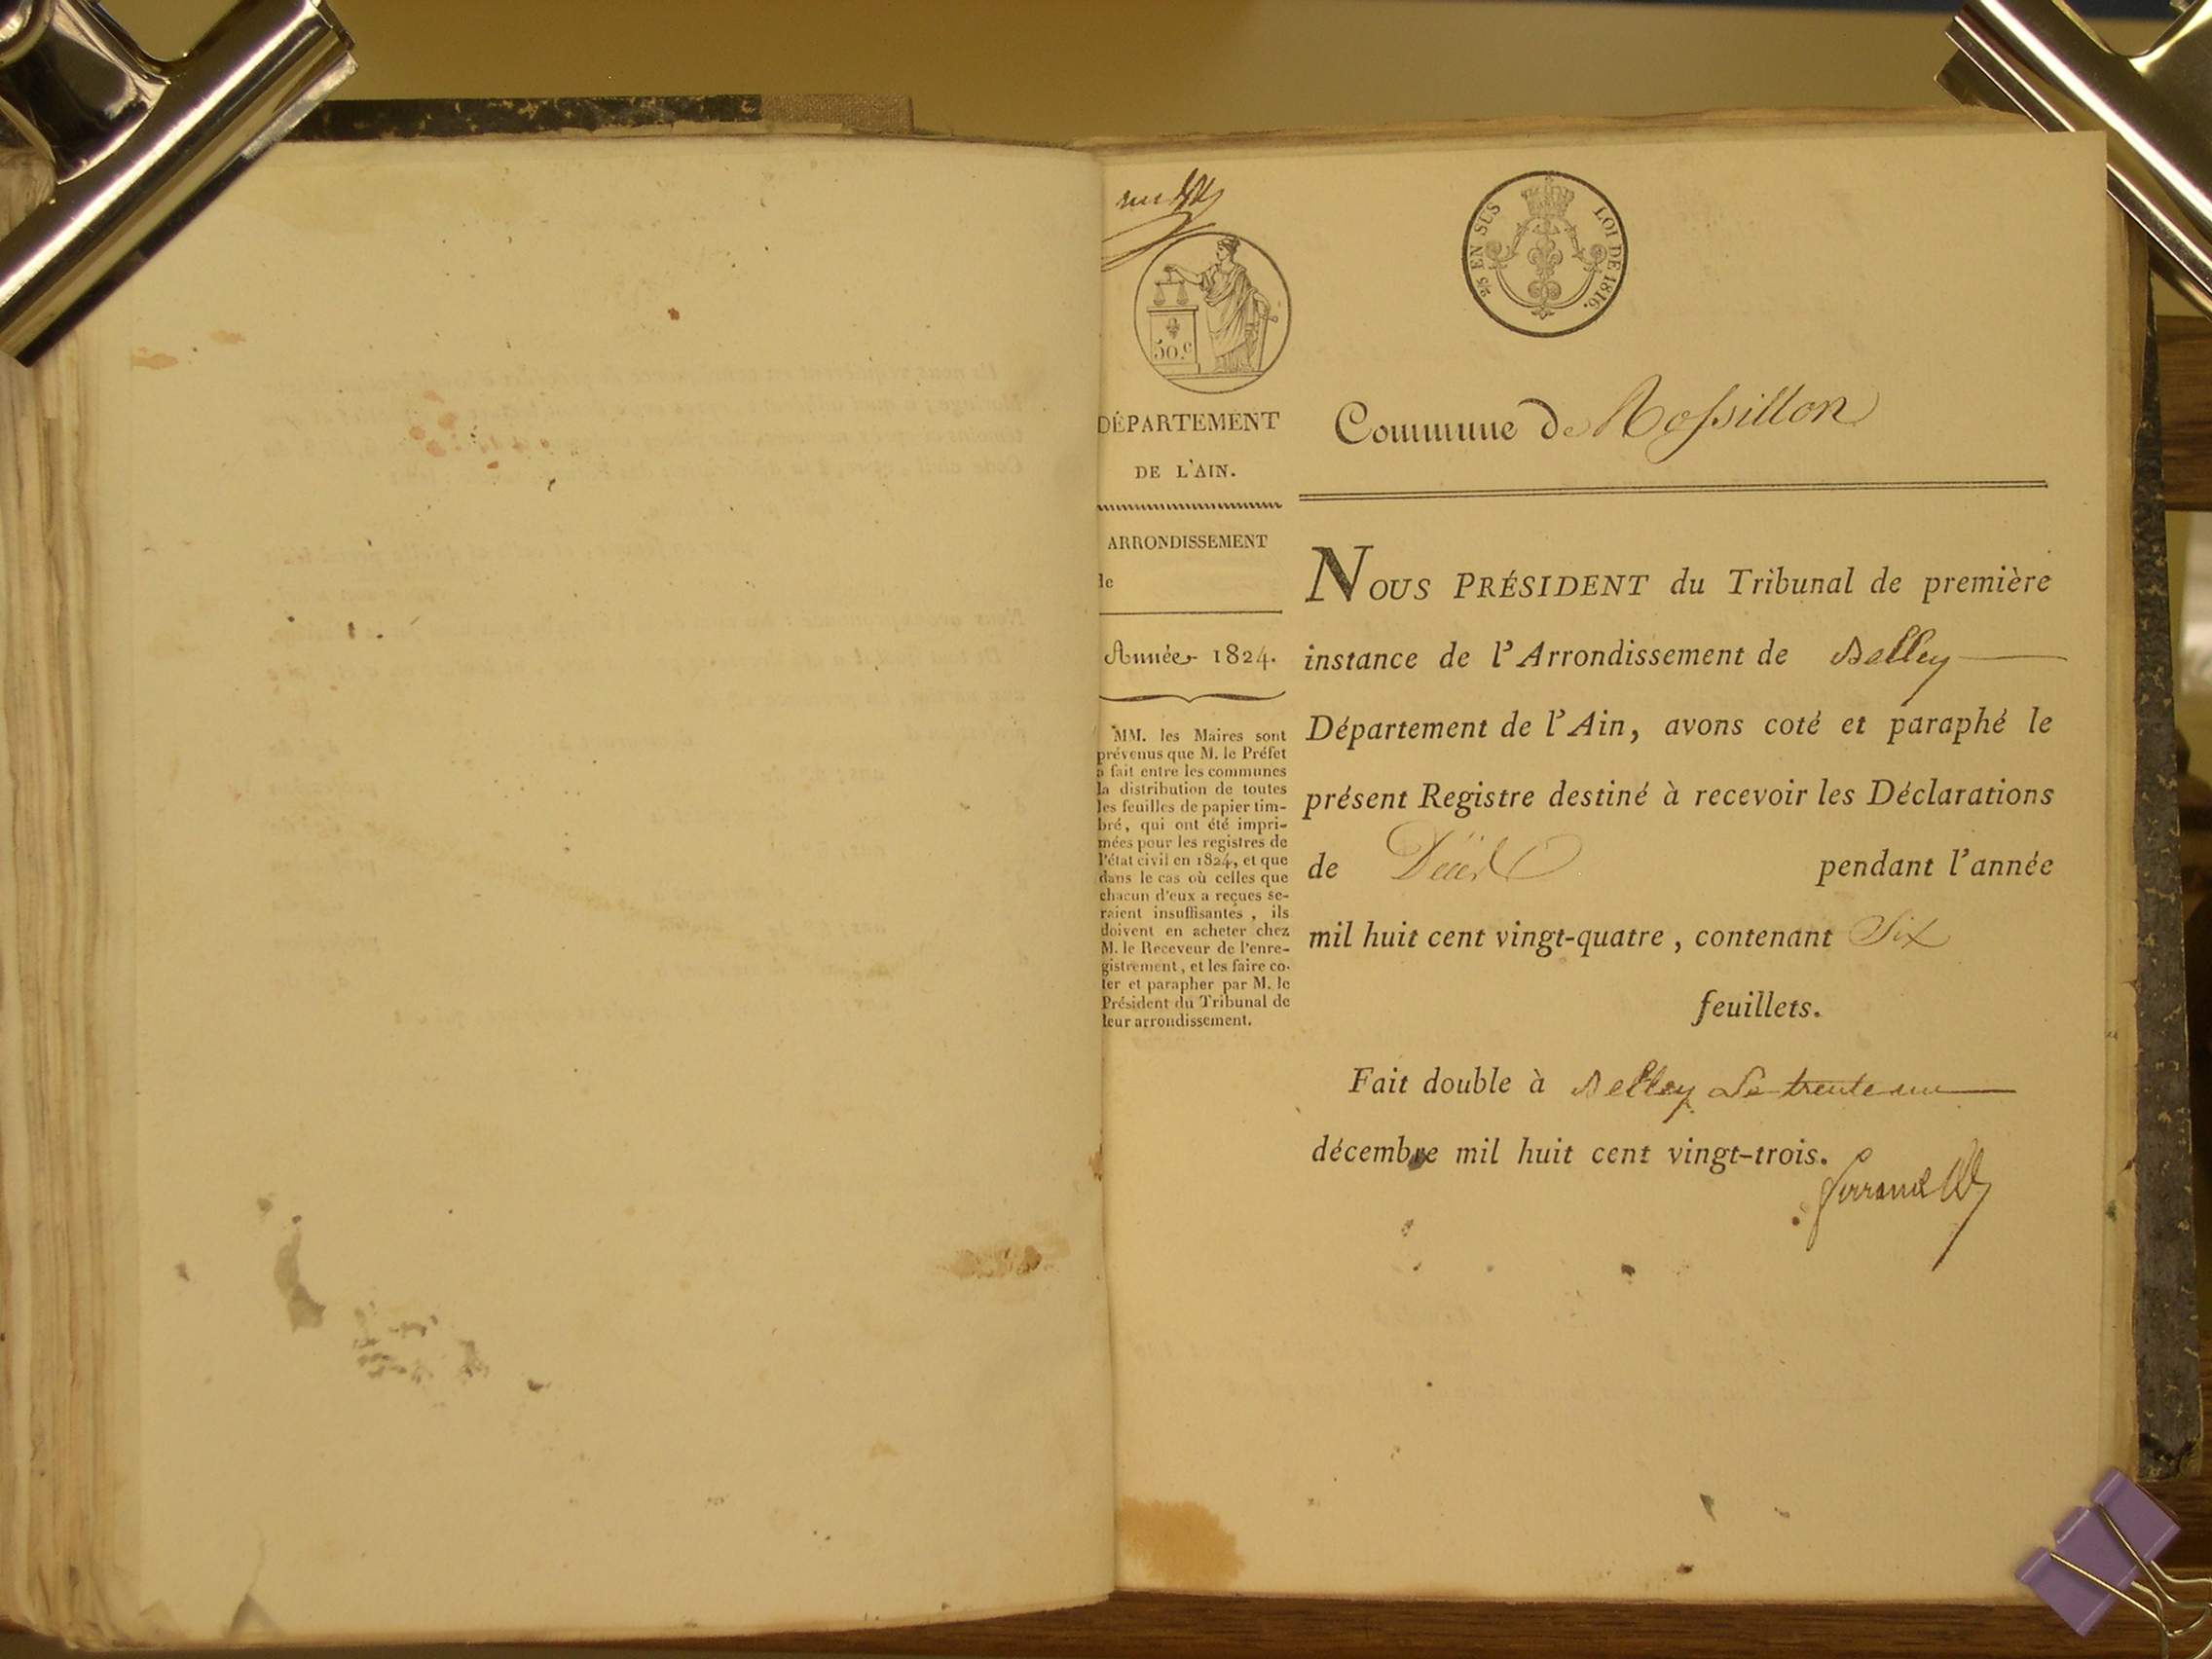 50.c
2/5 EN SUS LOI DE 1816.
DÉPARTEMENT
DE L'AIN.
ARRONDISSEMENT
de
Année 1824.
MM. les Maires sont
prévenus que M. le Préfet
a fait entre les communes
la distribution de toutes
les feuilles de papier tim-
bré, qui ont été impri-
mées pour les registres de
l'état civil en 1824, et que
dans le cas où celles que
chacun d'eux a reçues se-
raient insuffisantes, ils
doivent en acheter chez
M. le Receveur de l'enre-
gistrement, et les faire co-
ter et parapher par M. le
Président du Tribunal de
leur arrondissement.
Commune de Rossillon
NOUS PRÉSIDENT du Tribunal de première
instance de l'Arrondissement de Belley
Département de l'Ain, avons coté et paraphé le
présent Registre destiné à recevoir les Déclarations
de Décès pendant l'année
mil huit cent vingt-quatre, contenant Six
feuillets.
Fait double à Belley Le trente un
décembre mil huit cent vingt-trois.